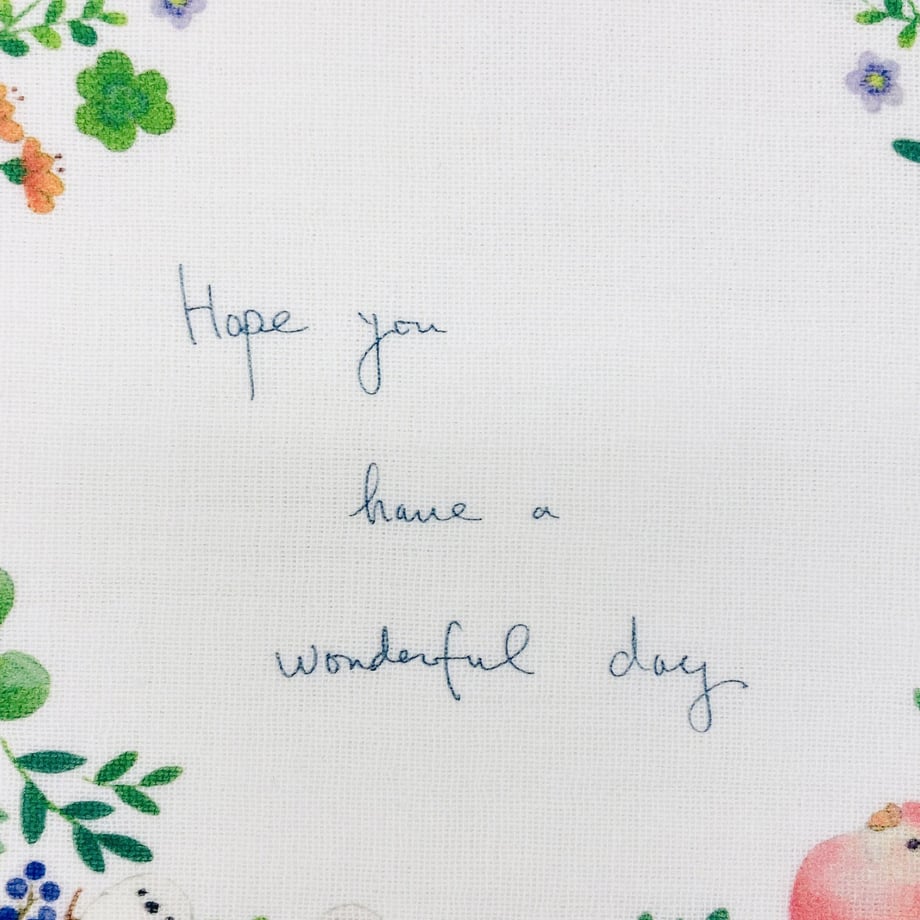 Hope you
have a
wonderful day